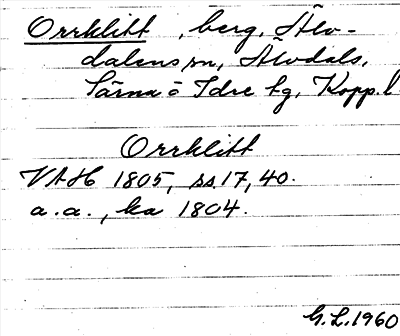 Orrklitt, berg, Älv-
dalens sn, Älvdals,
Särna o Idre tg, Kopp. l
Orrklitt
VAH 1805, ss 17, 40.
a.a., ka 1804.
G.L. 1960